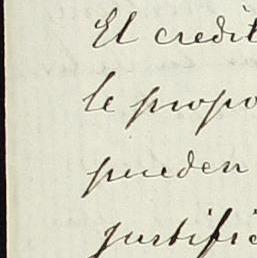 El credit
le propo
pueden
justific